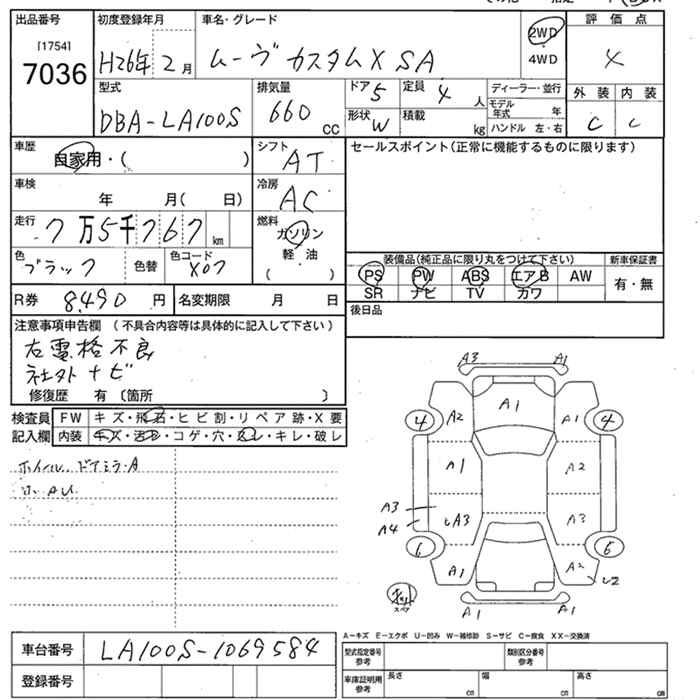 出品番号 初度登録年月 車名・グレード 2WD 評価点
[1754] 4WD 4
7036 H26年 2月 ムーヴ カスタムX SA 外装 内装
型式 排気量 ドア 5 定員 4人 ディーラー・並行 C C
DBA-LA100S 660 CC 形状 W 積載 kg モデル年式 年
ハンドル 左・右
車歴 自家用・( ) シフト AT セールスポイント(正常に機能するものに限ります)
車検 年 月( 日) 冷房 AC
走行 7万5千767km 燃料 ガソリン
色 ブラック 色替 色コード X07 軽・油 ( )
装備品(純正品に限り丸をつけて下さい) 新車保証書
PS PW ABS エアB AW 有・無
SR ナビ TV カワ
R券 8,490円 名変期限 月 日 後日品
注意事項申告欄 (不具合内容等は具体的に記入して下さい)
社外ナビ
修復歴 有 〔箇所 〕
検査員 FW キズ・飛石・ヒビ割・リペア跡・X要
記入欄 内装 キズ・汚レ・コゲ・穴・スレ・キレ・破レ
ホイール、ドアミラーA
A3 A1
A1
4 A2 A1 4
A1 A2
A3
A4
A3 A3
6 6
A1 A2
スペア
A1 A1
車台番号 LA100S-1069584
登録番号
A-キズ E-エクボ U-凹み W-補修跡 S-サビ C-腐食 XX-交換済
型式指定番号 参考 類別区分番号 参考
車庫証明用 参考 長さ cm 幅 cm 高さ cm